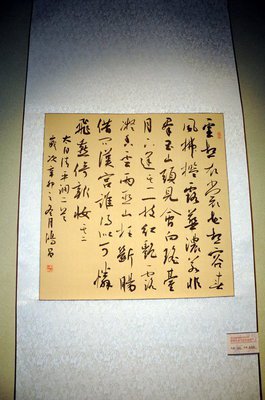 雲想衣裳花想容春
風拂檻露華濃若非
群玉山頭見會向瑤臺
月下逢其一一枝紅艷露
凝香雲雨巫山枉斷腸
借問漢宮誰得似可憐
飛燕倚新妝其二
太白清平調二首
歲次辛卯之冬月